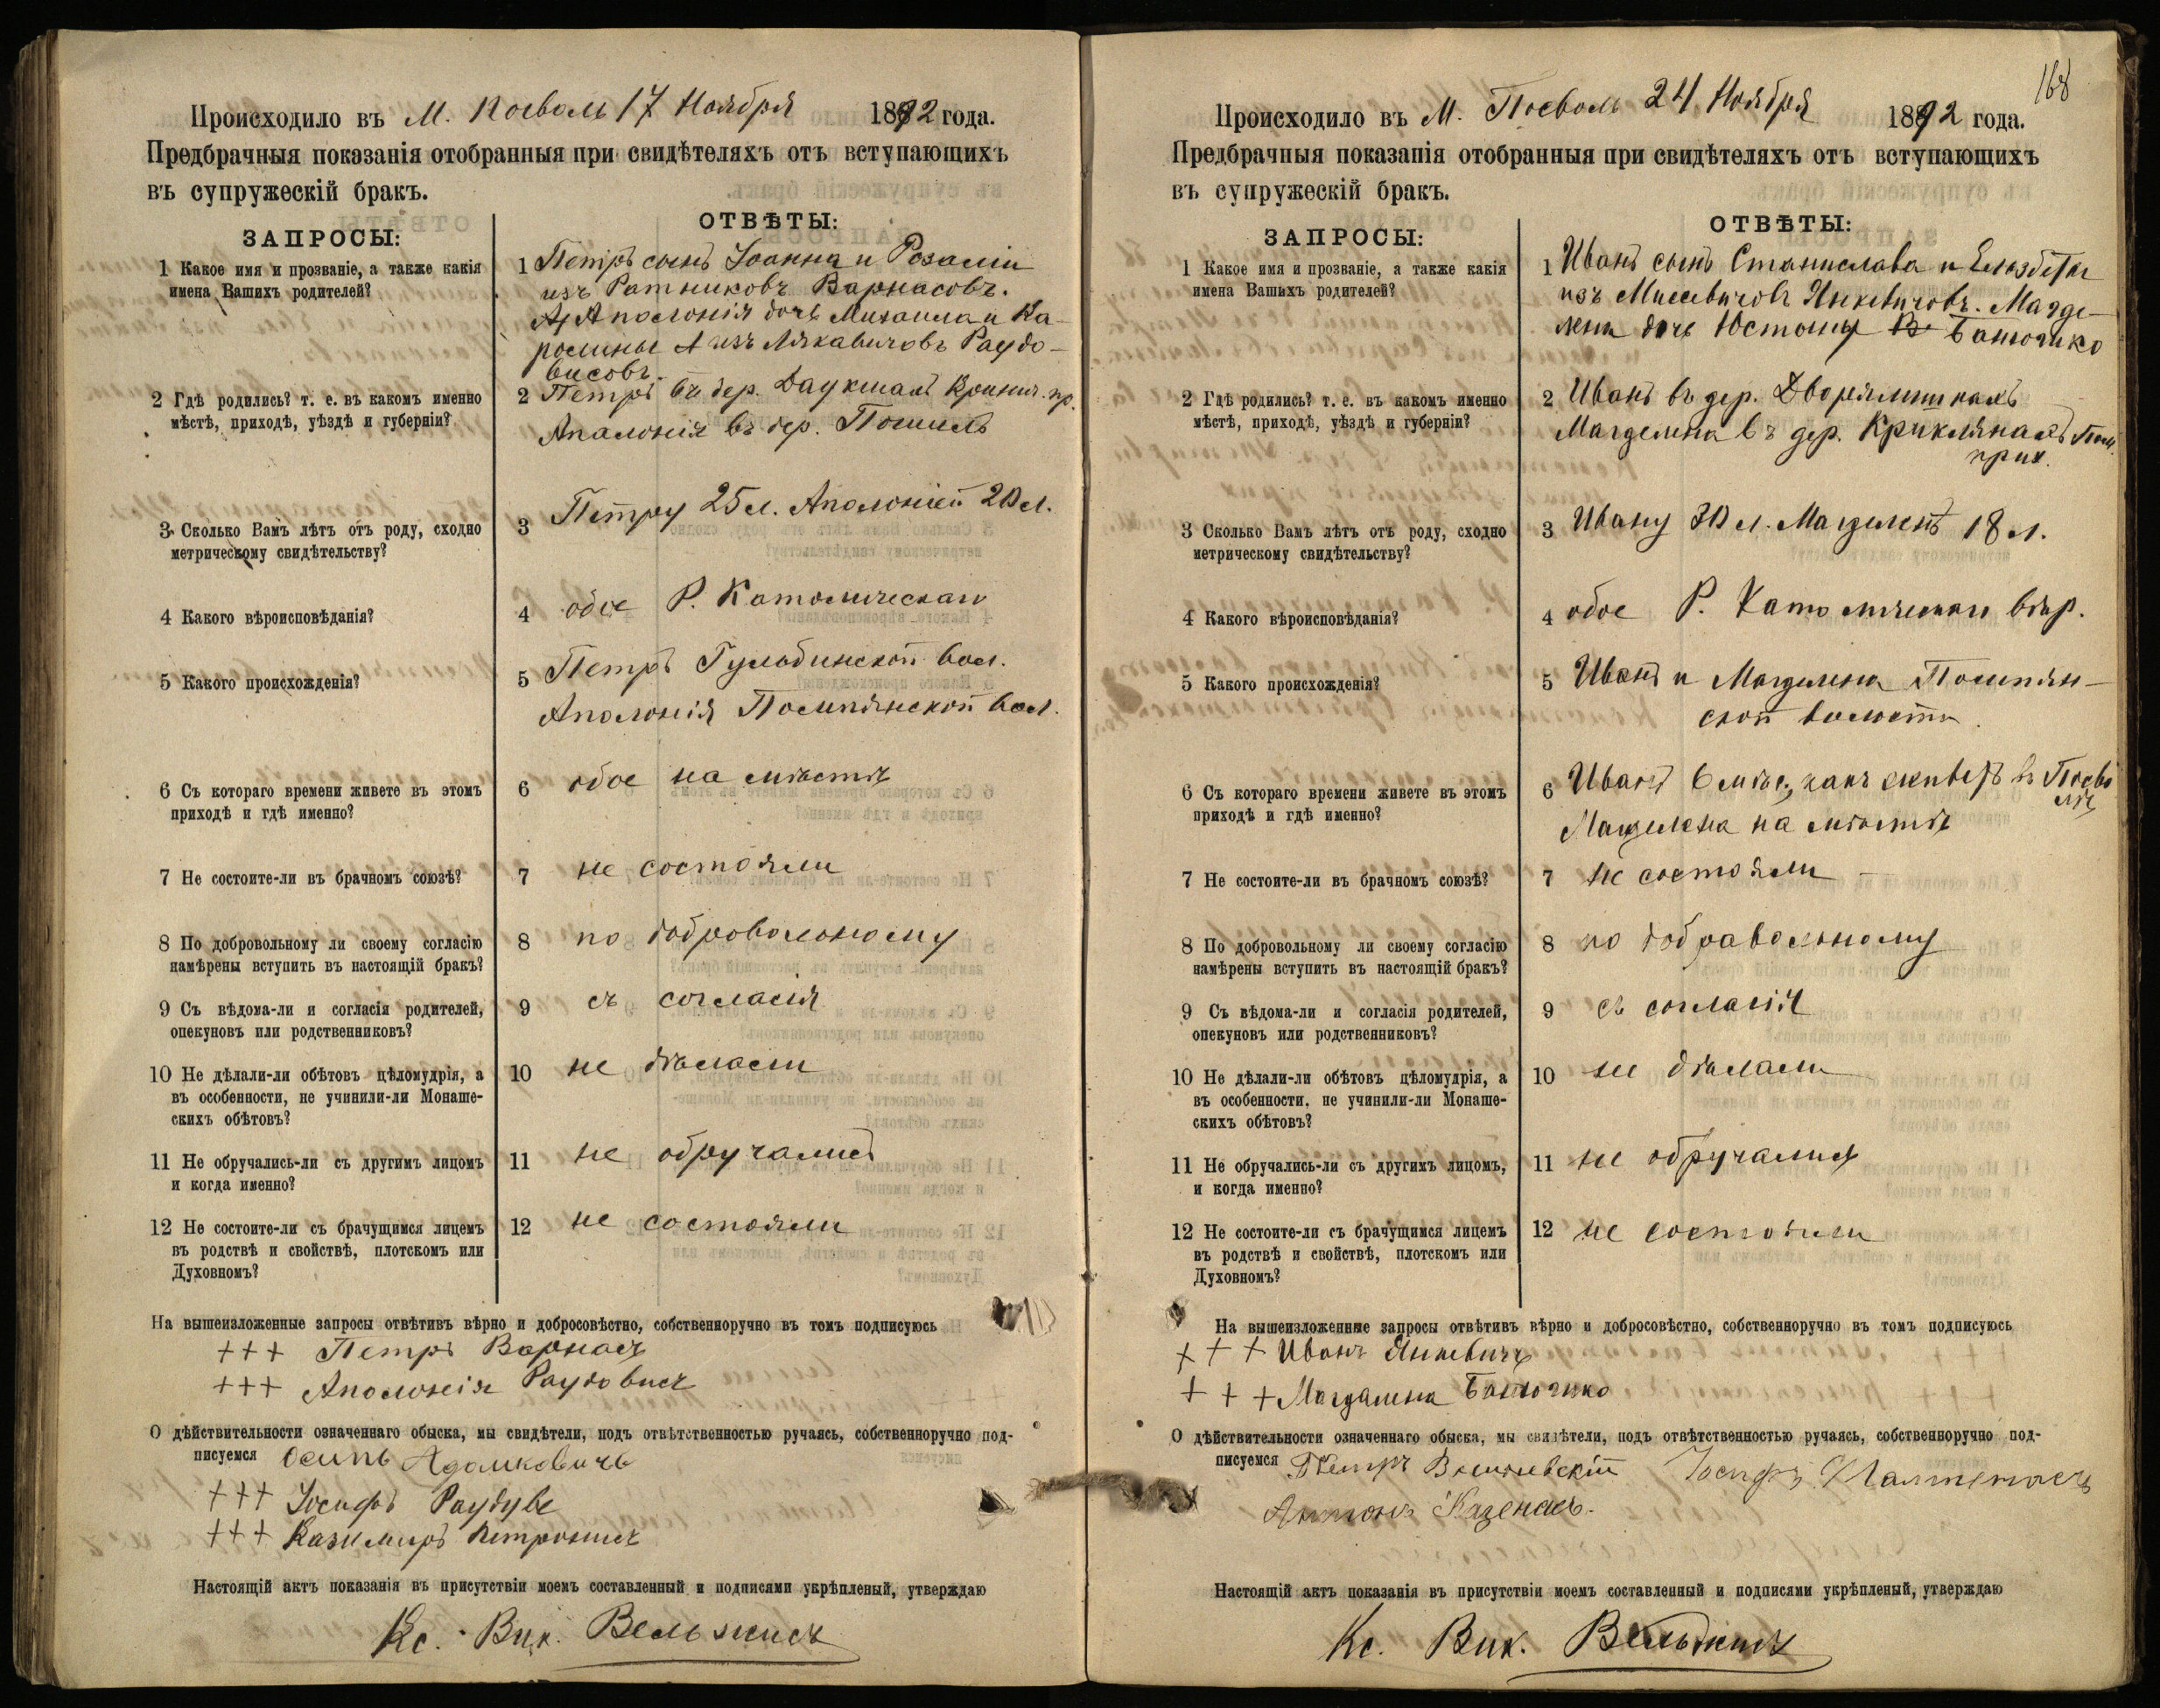 Происходило въ М. Поеволь 17 Ноября 1892 года.
Предбрачныя показанія отобранныя при свидѣтеляхъ отъ вступающихъ
въ супружескій бракъ.
ЗАПРОСЫ:
ОТВѢТЫ:
1 Какое имя и прозваніе, а также какія
имена Вашихъ родителей?
1 Петръ сынъ Іоанна и Розаліи
изъ Ратниковъ Варнасовъ.
Аполонія дочь Михаила и Ка-
ролины изъ Лякавичовъ Раудо-
висовъ.
2 Гдѣ родились? т. е. въ какомъ именно
мѣстѣ, приходѣ, уѣздѣ и губерніи?
2 Петръ въ дер. Даукшахъ Криничн. пр.
Аполонія въ дер.
3 Сколько Вамъ лѣтъ отъ роду, сходно
метрическому свидѣтельству?
3 Петру 25 л. Аполоніей 20 л.
4 Какого вѣроисповѣданія?
4 обое Р. Католическаго
5 Какого происхожденія?
5 Петръ Гульбинской вол.
Аполонія Помпянской вол.
6 Съ котораго времени живете въ этомъ
приходѣ и гдѣ именно?
6 обое на мѣстѣ
7 Не состоите-ли въ брачномъ союзѣ?
7 не состояли
8 По добровольному ли своему согласію
намѣрены вступить въ настоящій бракъ?
8 по добровольному
9 Съ вѣдома-ли и согласія родителей,
опекуновъ или родственниковъ?
9 съ согласія
10 Не дѣлали-ли обѣтовъ цѣломудрія, а
въ особенности, не учинили-ли Монаше-
скихъ обѣтовъ?
10 не дѣлали
11 Не обручались-ли съ другимъ лицомъ
и когда именно?
11 не обручались
12 Не состоите-ли съ брачущимся лицемъ
въ родствѣ и свойствѣ, плотскомъ или
Духовномъ?
12 не состояли
На вышеизложенные запросы отвѣтивъ вѣрно и добросовѣстно, собственноручно въ томъ подписуюсь
+++ Петръ Варнасъ
+++ Аполонія Раудовисъ
О дѣйствительности означеннаго обыска, мы свидѣтели, подъ отвѣтственностью ручаясь, собственноручно под-
писуемся Осипъ Адамковичъ
+++ Іосифъ Раудуве
+++ Казимиръ Петронисъ
Настоящій актъ показанія въ присутствіи моемъ составленный и подписями укрѣпленый, утверждаю
Кс. Вик. Вельжисъ
168
Происходило въ М. Поеволь 24 Ноября 1892 года.
Предбрачныя показанія отобранныя при свидѣтеляхъ отъ вступающихъ
въ супружескій бракъ.
ЗАПРОСЫ:
ОТВѢТЫ:
1 Какое имя и прозваніе, а также какія
имена Вашихъ родителей?
1 Иванъ сынъ Станислава и Ельзбеты
изъ Мисевичовъ Янкевичовъ. Магде-
лена дочь Юстыны Банючико
2 Гдѣ родились? т. е. въ какомъ именно
мѣстѣ, приходѣ, уѣздѣ и губерніи?
2 Иванъ въ дер.
Магделена въ дер. Криклянахъ Пом.
прих.
3 Сколько Вамъ лѣтъ отъ роду, сходно
метрическому свидѣтельству?
3 Ивану 30 л. Магделенѣ 18 л.
4 Какого вѣроисповѣданія?
4 обое Р. Католическаго вѣр.
5 Какого происхожденія?
5 Иванъ и Магделена Помпян-
ской волости.
6 Съ котораго времени живете въ этомъ
приходѣ и гдѣ именно?
6 Иванъ 6 мѣс., какъ живетъ въ Поево
лѣ,
Магделена на мѣстѣ
7 Не состоите-ли въ брачномъ союзѣ?
7 не состояли
8 По добровольному ли своему согласію
намѣрены вступить въ настоящій бракъ?
8 по добравольному
9 Съ вѣдома-ли и согласія родителей,
опекуновъ или родственниковъ?
9 съ согласія
10 Не дѣлали-ли обѣтовъ цѣломудрія, а
въ особенности. не учинили-ли Монаше-
скихъ обѣтовъ?
10 не дѣлали
11 Не обручались-ли съ другихъ лицомъ,
и когда именно?
11 не обручались
12 Не состоите-ли съ брачущимся лицемъ
въ родствѣ и свойствѣ, плотскомъ или
Духовномъ?
12 не состояли
На вышеизложенные запросы отвѣтивъ вѣрно и добросовѣстно, собственноручно въ томъ подписуюсь
+ + + Иванъ Янкевичъ
+ + + Магдалена Банючико
О дѣйствительности означеннаго обыска, мы свидѣтели, подъ отвѣтственностью ручаясь, собственноручно под-
писуемся Петръ Іосифъ
Антонъ Казенасъ.
Настоящій актъ показанія въ присутствіи моемъ составленный и подписями укрѣпленый, утверждаю
Кс. Вик. Вельжисъ